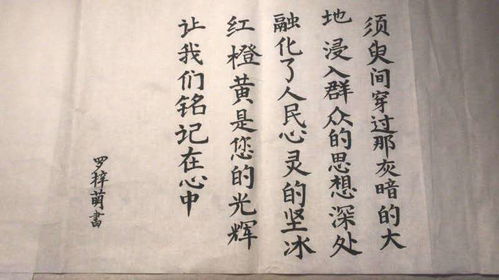 须臾间穿过那灰暗的大
地浸入群众的思想深处
融化了人民心灵的坚冰
红橙黄是您的光辉
让我们铭记在心中
罗梓萌书